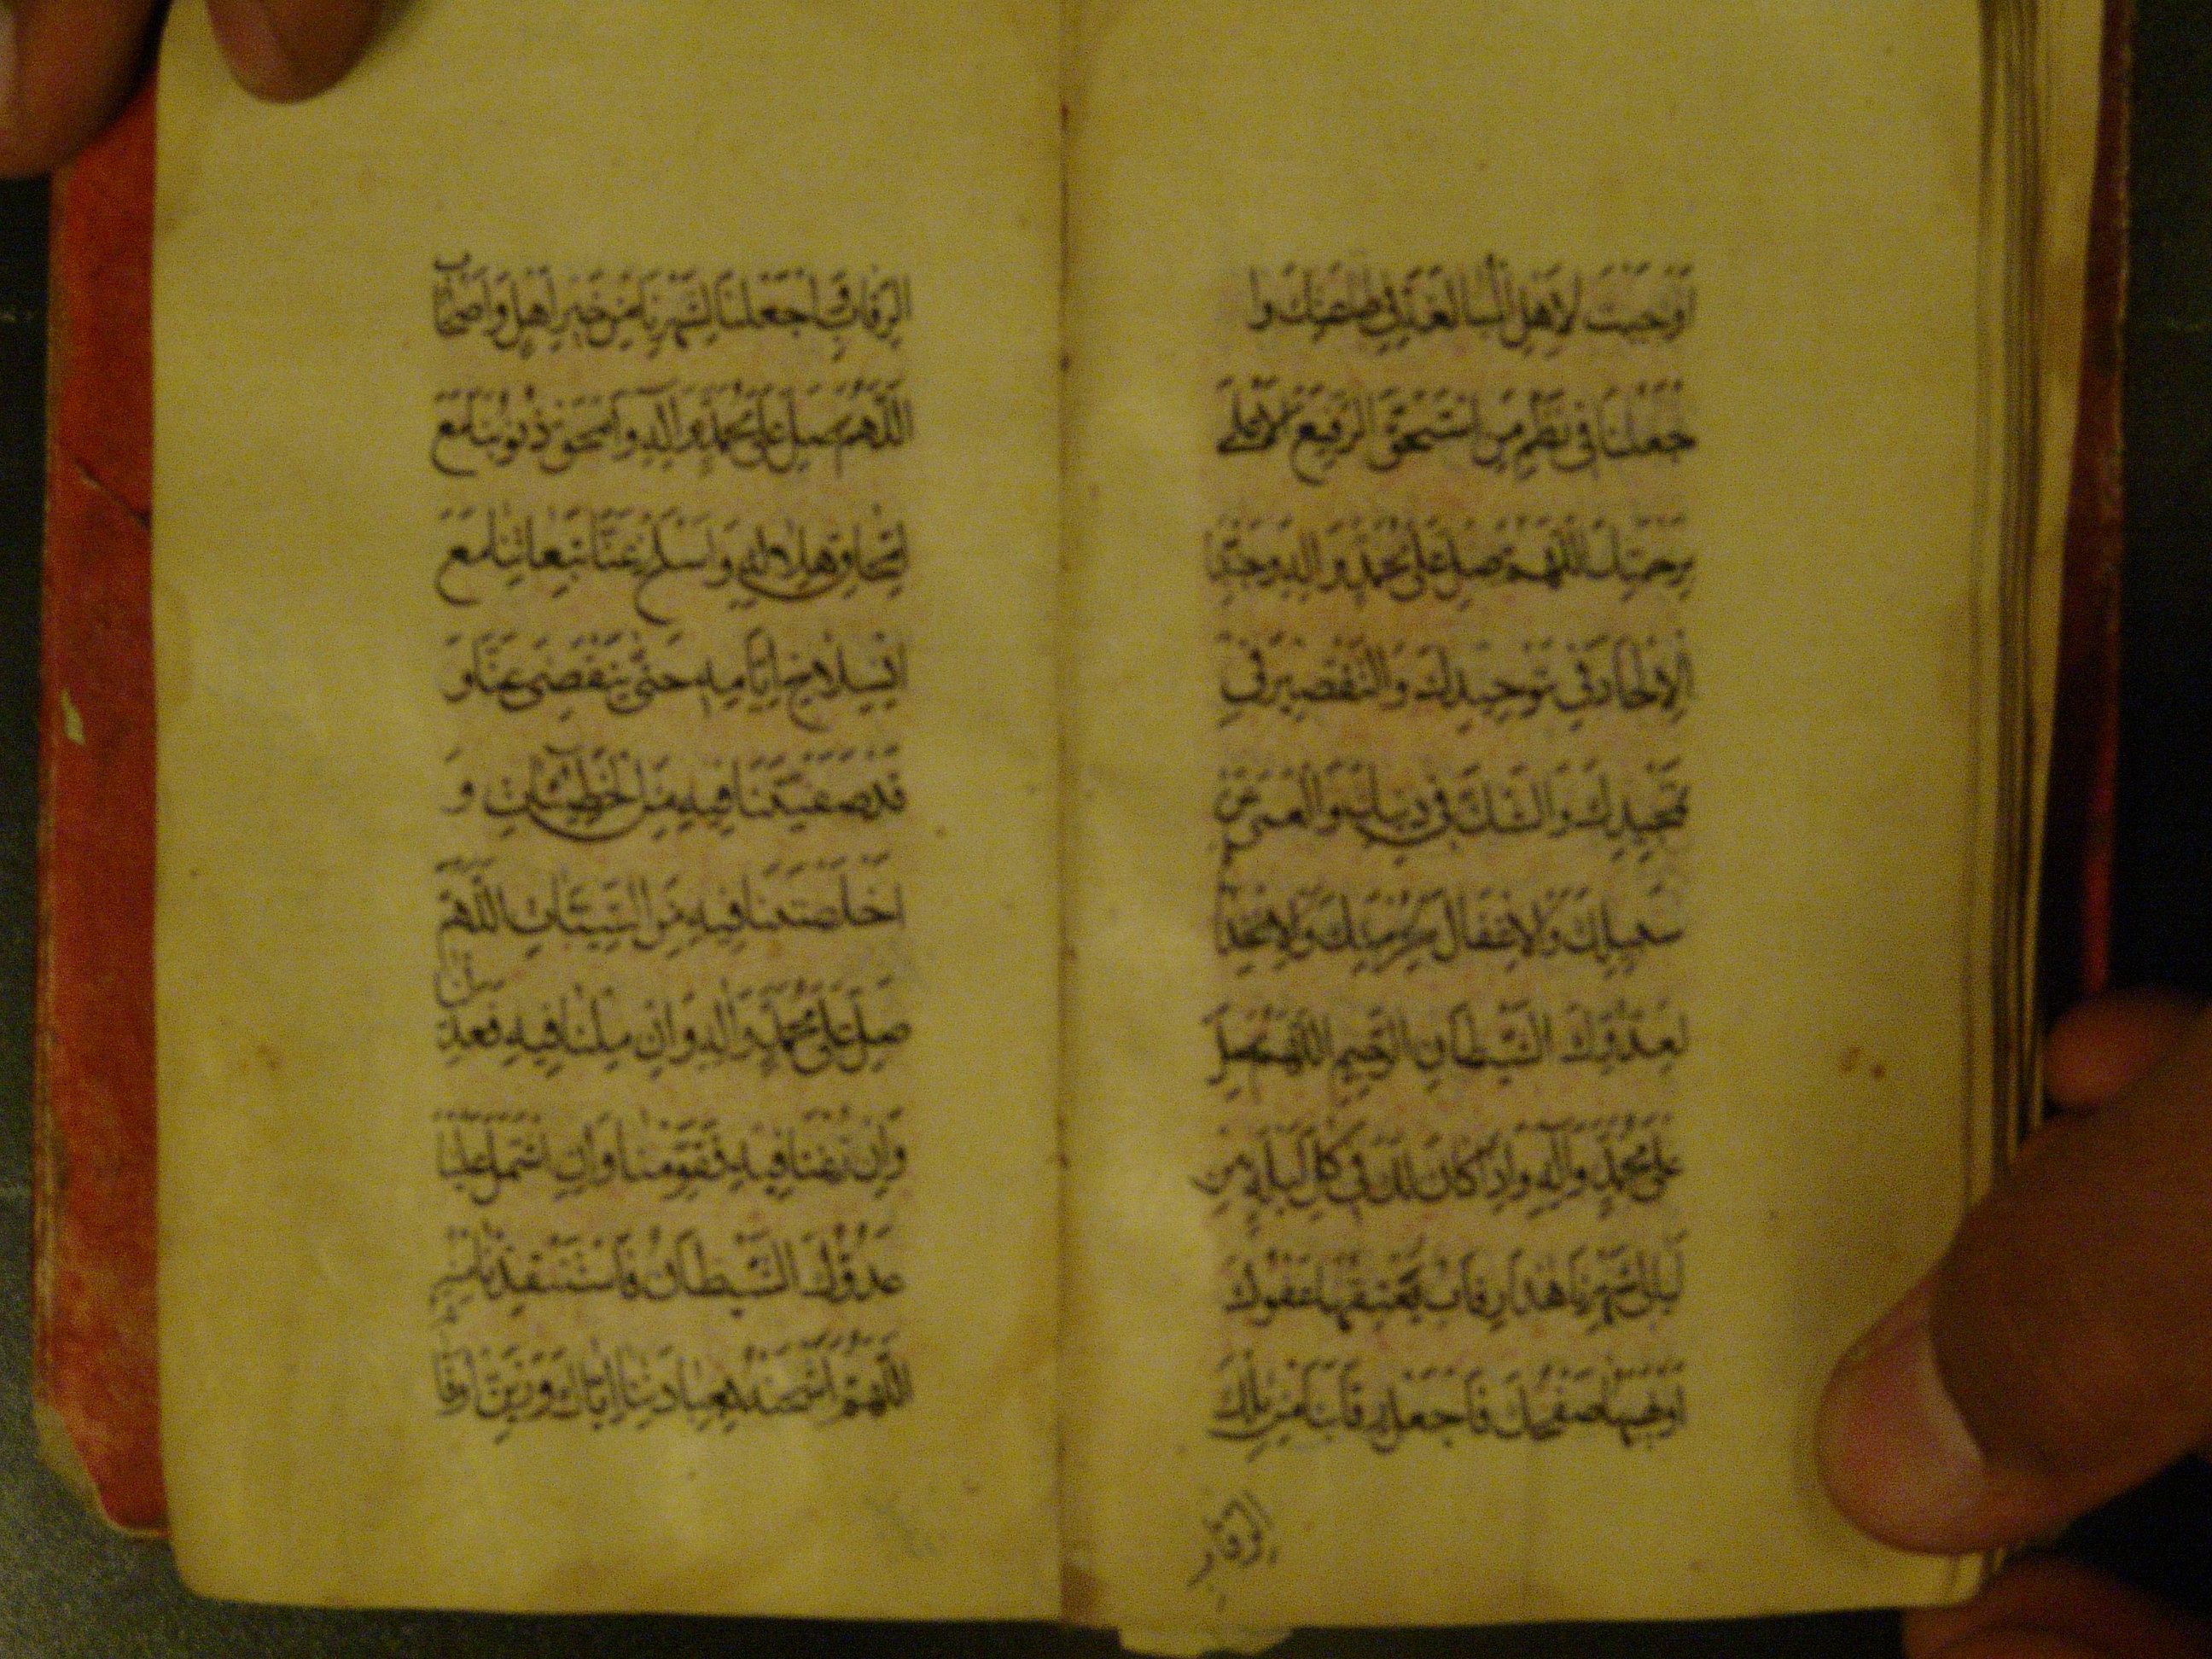 أَوْجَبْتَ لِأَهْلِ الْمُبَالَغَةِ فِي طَاعَتِكَ وَا
جْعَلْنَا فِي نَظْمِ مَنِ اسْتَحَقَّ الرَّفِيعَ الْأَعْلَى
بِرَحْمَتِكَ اللَّهُمَّ صَلِّ عَلَى مُحَمَّدٍ وَآلِهِ وَجَنِّبْنَا
الْإِلْحَادَ فِي تَوْحِيدِكَ وَالتَّقْصِيرَ فِي
تَمْجِيدِكَ وَالشَّكَّ فِي دِينِكَ وَالْعَمَى عَنْ
سَبِيلِكَ وَالْإِغْفَالَ لِحُرْمَتِكَ وَالْاِنْخِدَا
لِعَدُوِّكَ الشَّيْطَانِ الرَّجِيمِ اللَّهُمَّ صَلِّ
عَلَى مُحَمَّدٍ وَآلِهِ وَإِذَا كَانَ لَكَ فِي كُلِّ لَيْلَةٍ مِنْ
لَيَالِي شَهْرِنَا هَذَا رِقَابٌ يُعْتِقُهَا عَفْوُكَ
أَوْ يَهَبُهَا صَفْحُكَ فَاجْعَلْ رِقَابَنَا مِنْ تِلْكَ
الرقاب
الرِّقَابِ وَاجْعَلْنَا لِشَهْرِنَا مِنْ خَيْرِ أَهْلٍ وَأَصْحَابٍ
اللَّهُمَّ صَلِّ عَلَى مُحَمَّدٍ وَآلِهِ وَامْحَقْ ذُنُوبَنَا مَعَ
امْحَاقِ هِلَالِهِ وَاسْلَخْ عَنَّا تَبِعَاتِنَا مَعَ
انْسِلَاخِ أَيَّامِهِ حَتَّى يَنْقَضِيَ عَنَّا وَ
قَدْ صَفَّيْتَنَا فِيهِ مِنَ الْخَطِيئَاتِ وَ
أَخْلَصْتَنَا فِيهِ مِنَ السَّيِّئَاتِ اللَّهُمَّ
صَلِّ عَلَى مُحَمَّدٍ وَآلِهِ وَإِنْ مِلْنَا فِيهِ فَعَدِّلْنَا
وَإِنْ زِغْنَا فِيهِ فَقَوِّمْنَا وَإِنِ اشْتَمَلَ عَلَيْنَا
عَدُوُّكَ الشَّيْطَانُ فَاسْتَنْقِذْنَا مِنْهُ
اللَّهُمَّ اشْحَنْهُ بِعِبَادَتِنَا إِيَّاكَ وَزَيِّنْ أَوْقَا